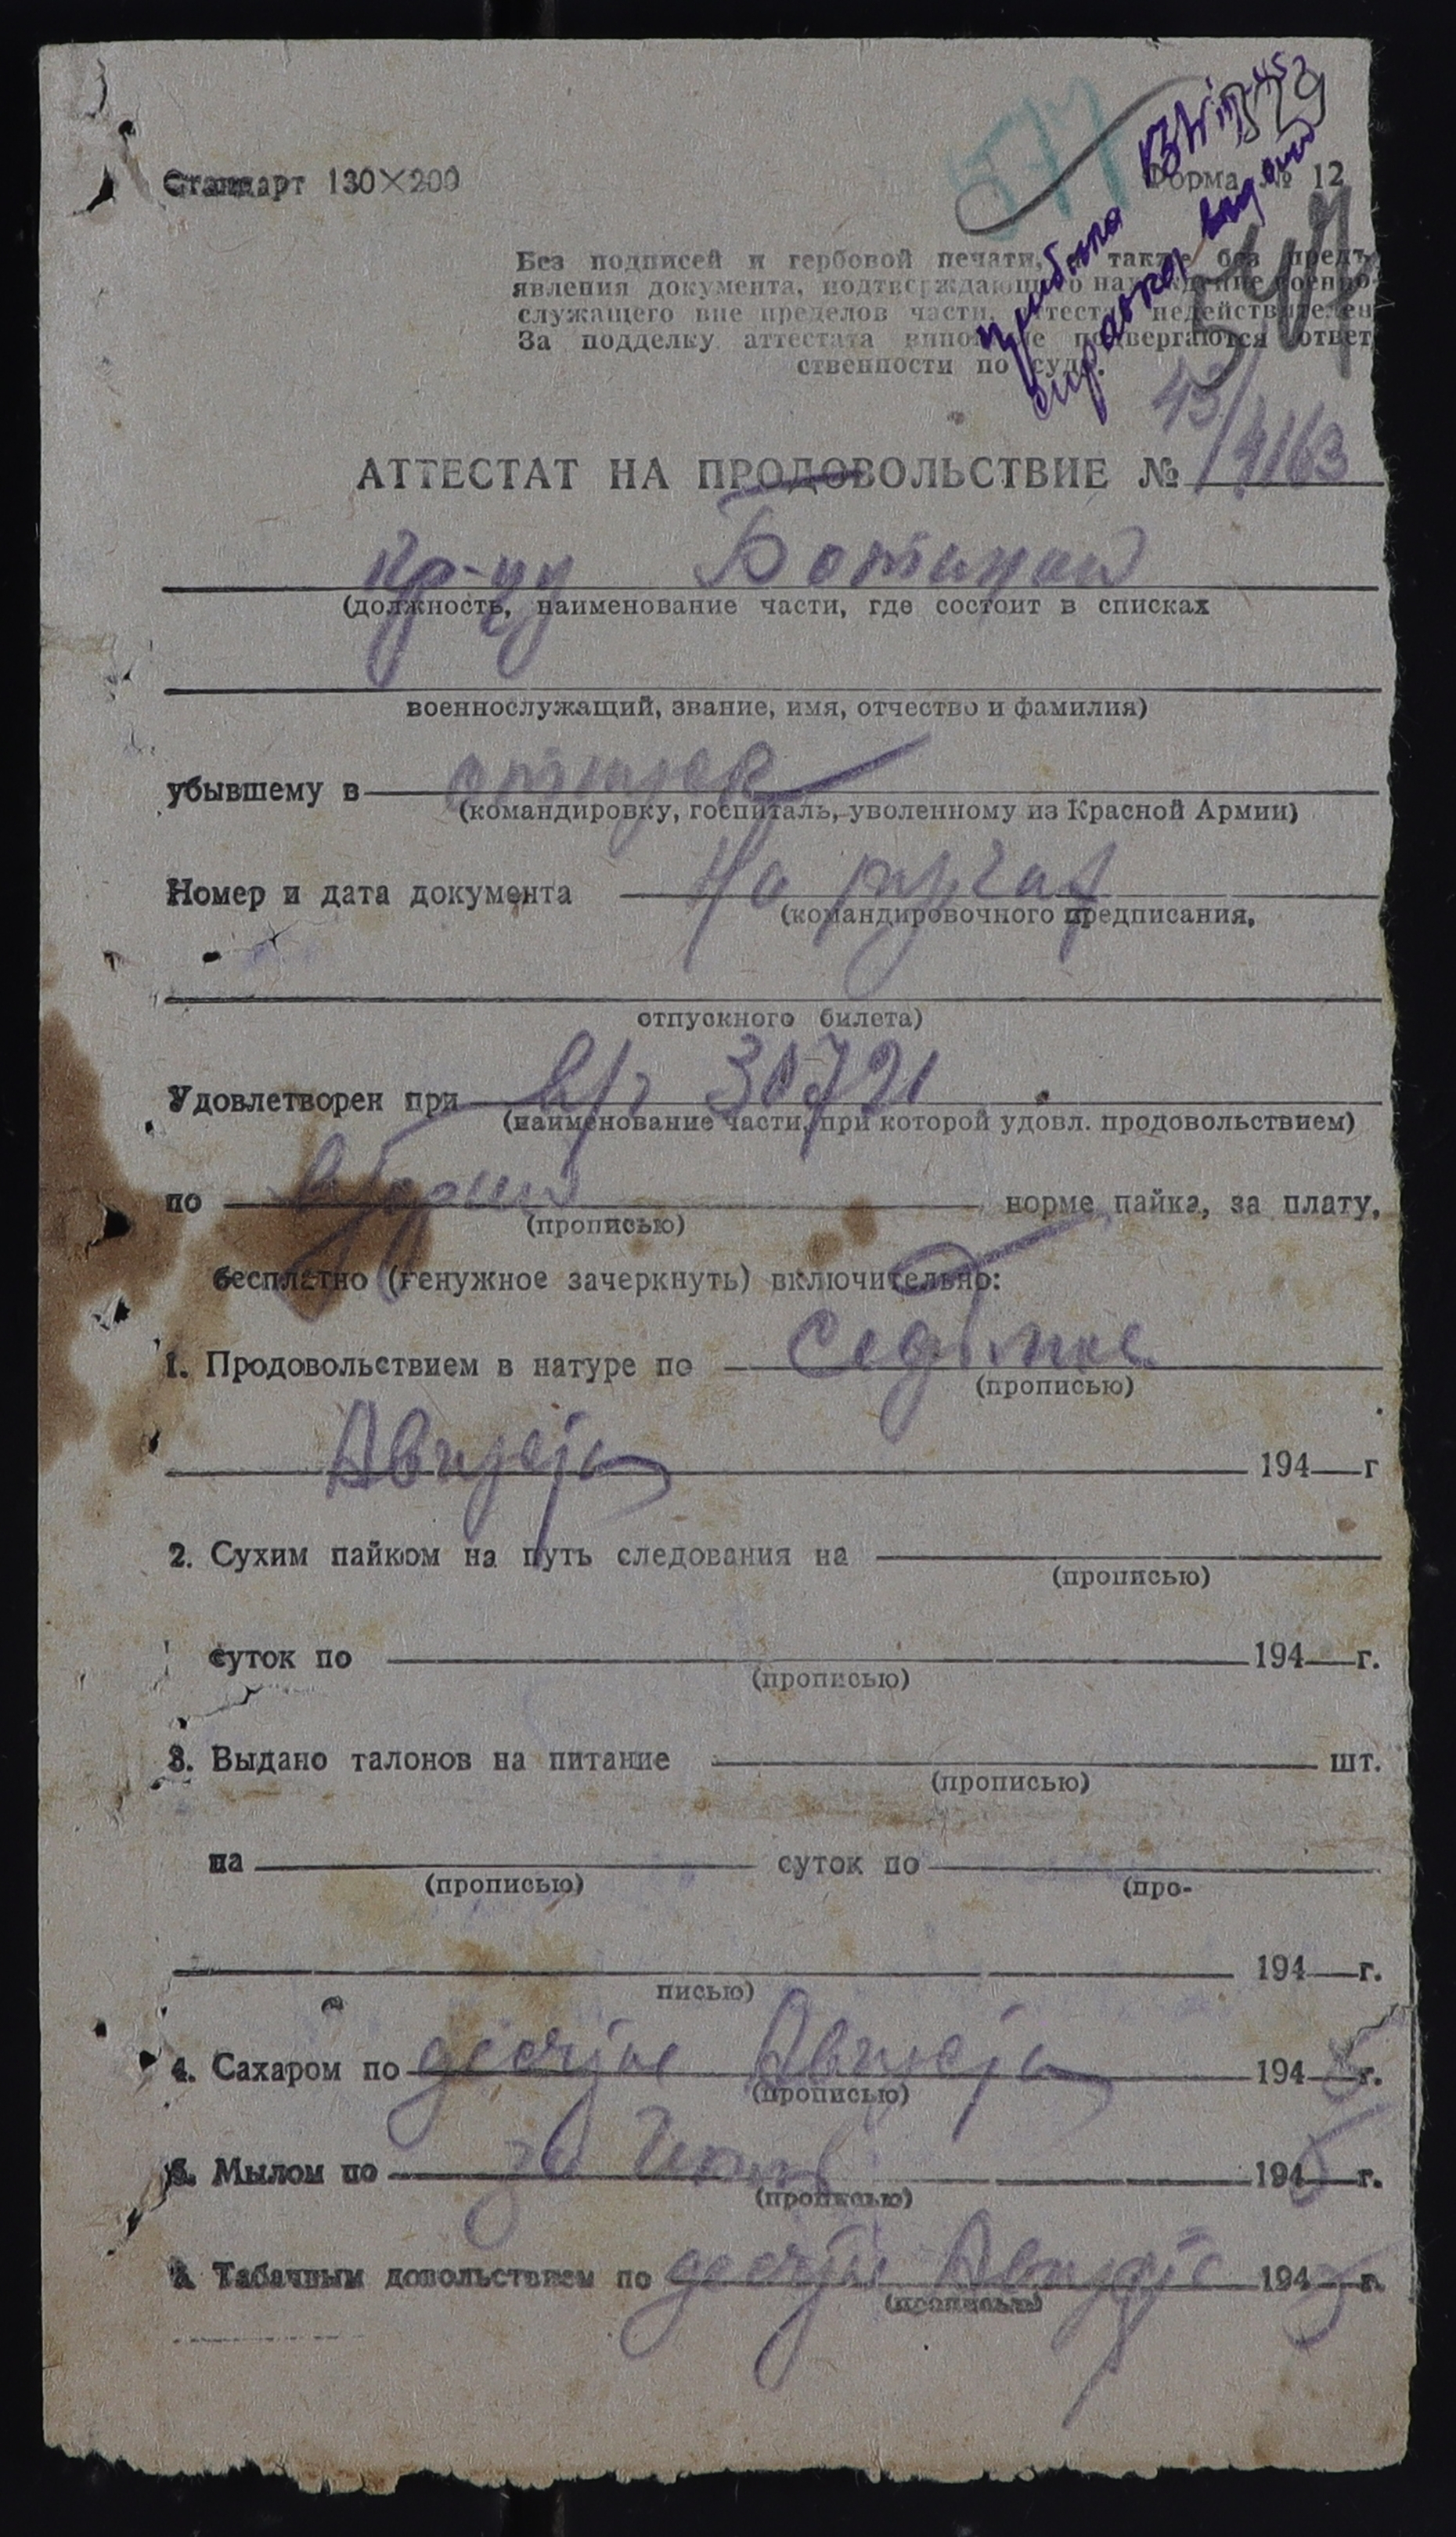 577
529
Прибыла 13/VIII-45г
справка выдана
Стандарт 130×200
Форма № 12
Без подписей и гербовой печати, а также без предъ-
явления документа, подтверждающего нахождение военно-
служащего вне пределов части, аттестат недействителен
За подделку аттестата виновные подвергаются ответ
ственности по суду.
АТТЕСТАТ НА ПРОДОВОЛЬСТВИЕ № 43/4163
кр-цу
(должность, наименование части, где состоит в списках
военнослужащий, звание, имя, отчество и фамилия)
убывшему в отпуск
(командировку, госпиталь, уволенному из Красной Армии)
Номер и дата документа На руках
(командировочного предписания,
отпускного билета)
Удовлетворен при в/ч 30721
(наименование части, при которой удовл. продовольствием)
по второй норме пайка, за плату,
(прописью)
бесплатно (ненужное зачеркнуть) включительно:
1. Продовольствием в натуре по седьмое
(прописью)
Августа 194 г
2. Сухим пайком на путь следования на
(прописью)
суток по 194 г.
(прописью)
3. Выдано талонов на питание шт.
(прописью)
на суток по
(прописью) (про-
194 г.
писью)
4. Сахаром по десятое Августа 1945 г.
(прописью)
5. Мылом по за Июль 1945 г.
(прописью)
Табачным довольствием по десятое Августа 1945 г.
(прописью)